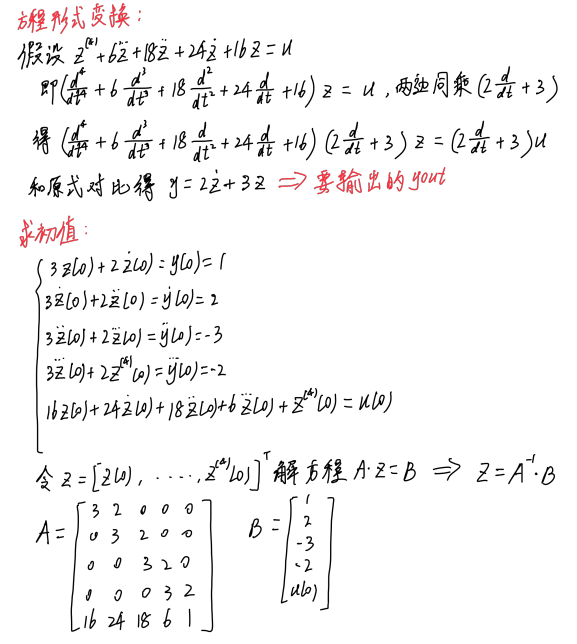 方程形式变换：
假设 z⁽⁴⁾+6z⃛+18z̈+24ż+16z=u
即(d⁴/dt⁴+6 d³/dt³+18 d²/dt²+24 d/dt+16) z = u，两边同乘(2 d/dt+3)
得 (d⁴/dt⁴+6 d³/dt³+18 d/dt²+24 d/dt+16) (2 d/dt+3) z=(2 d/dt+3)u
和原式对比得 y=2ż+3z ⇒ 要输出的yout
求初值：
{ 3z(0)+2ż(0)=y(0)=1
3ż(0)+2z̈(0)=ẏ(0)=2
3z̈(0)+2z⃛(0)=ÿ(0)=-3
3z⃛(0)+2z⁽⁴⁾(0)=y⃛(0)=-2
16z(0)+24ż(0)+18z̈(0)+6z⃛(0)+z⁽⁴⁾(0)=u(0)
令 z=[z(0), ·····, z⁽⁴⁾(0)]ᵀ 解方程 A·z=B ⇒ Z=A⁻¹·B
A=[3 2 0 0 0
0 3 2 0 0
0 0 3 2 0
0 0 0 3 2
16 24 18 6 1]
B=[1
2
-3
-2
u(0)]